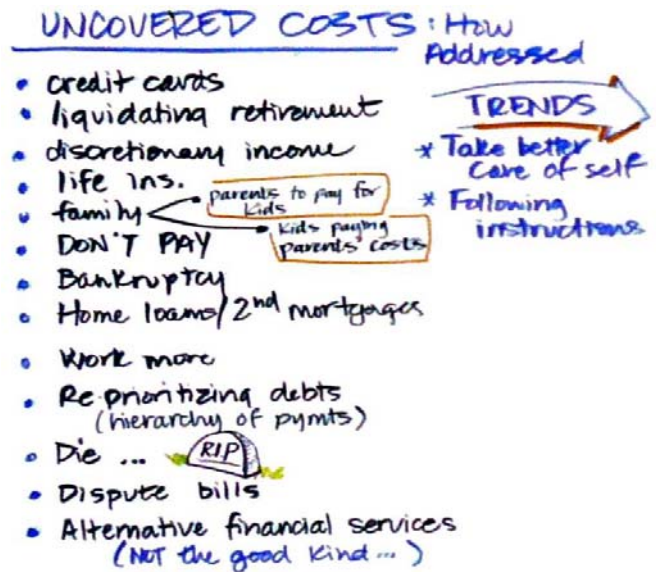 UNCOVERED COSTS: How
Addressed
• credit cards
• liquidating retirement
• discretionary income
• life ins.
• family
parents to pay for
kids
kids paying
parents' costs
• DON'T PAY
• Bankruptcy
• Home loans/2nd mortgages
• Work more
• Re-prioritizing debts
(hierarchy of pymts)
• Die ...
RIP
• Dispute bills
• Alternative financial services
(NOT the good kind...)
TRENDS
* Take better
care of self
* Following
instructions